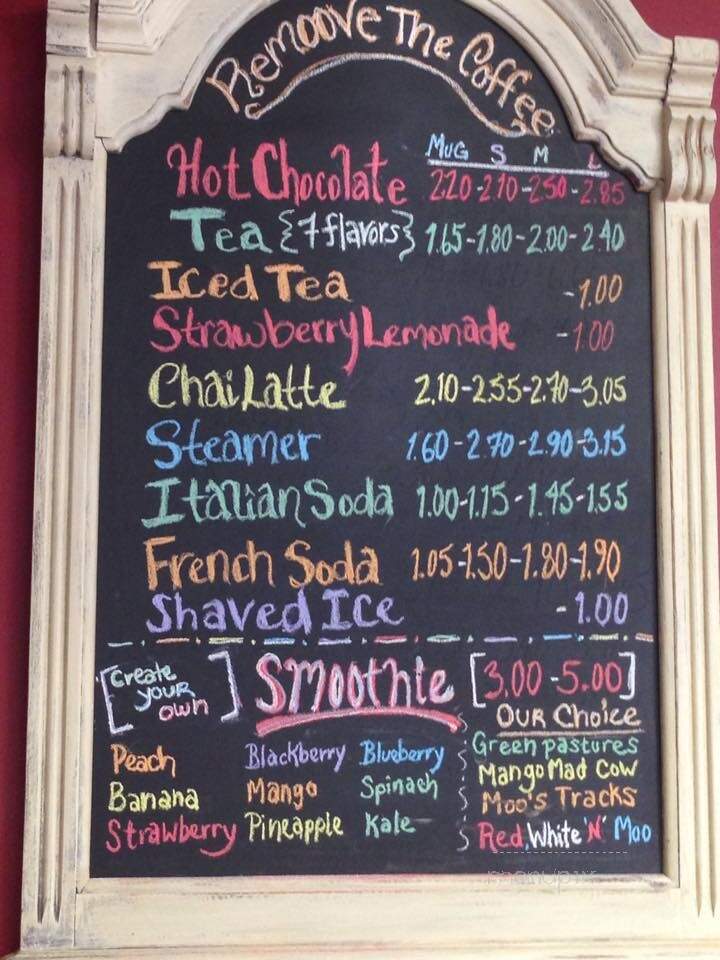 Remoove The Coffee
MUG S M L
Hot Chocolate 2.20-2.70-2.50-2.85
Tea {7 flavors} 1.65-1.80-2.00-2.40
Iced Tea -1.00
Strawberry Lemonade -1.00
Chai Latte 2.10-2.55-2.70-3.05
Steamer 1.60-2.70-2.90-3.15
Italian Soda 1.00-1.15-1.45-1.55
French Soda 1.05-1.50-1.80-1.90
Shaved Ice -1.00
[Create your own] Smoothie [3.00-5.00]
Our Choice
Peach Blackberry Blueberry Green pastures
Banana Mango Spinach Mango Mad Cow
Strawberry Pineapple Kale Moo's Tracks
Red, White 'N' Moo